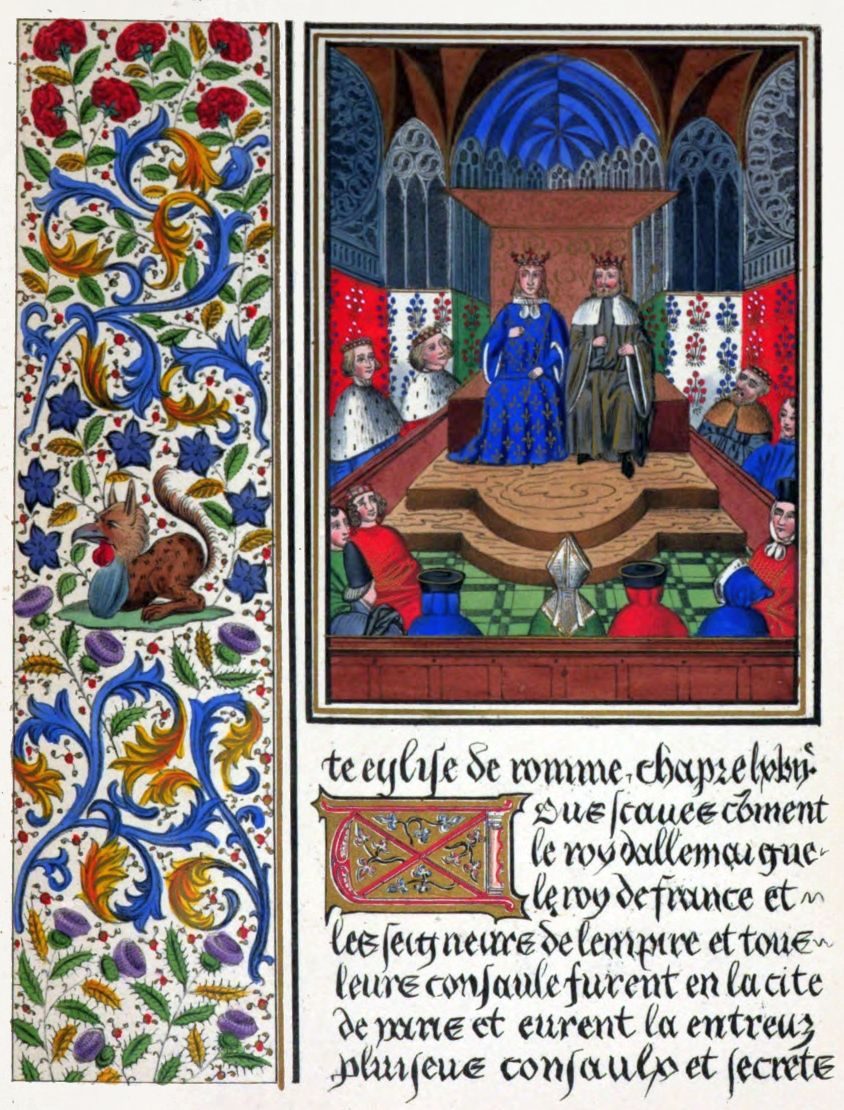 te eglise de romme. chapre
Vous scaues cõment
le roy dallemaigne
le roy de france et
les seigneurs de lempire et tous
leurs consauls furent en la cite
de paris et eurent la entreuz
pluiseus consaulx et secrets